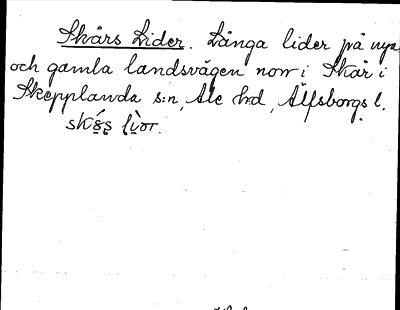 Skårs Lider. Långa lider på nya
och gamla landsvägen norr i Skår i
Skepplanda s:n, Ale hrd, Älfsborgs l.